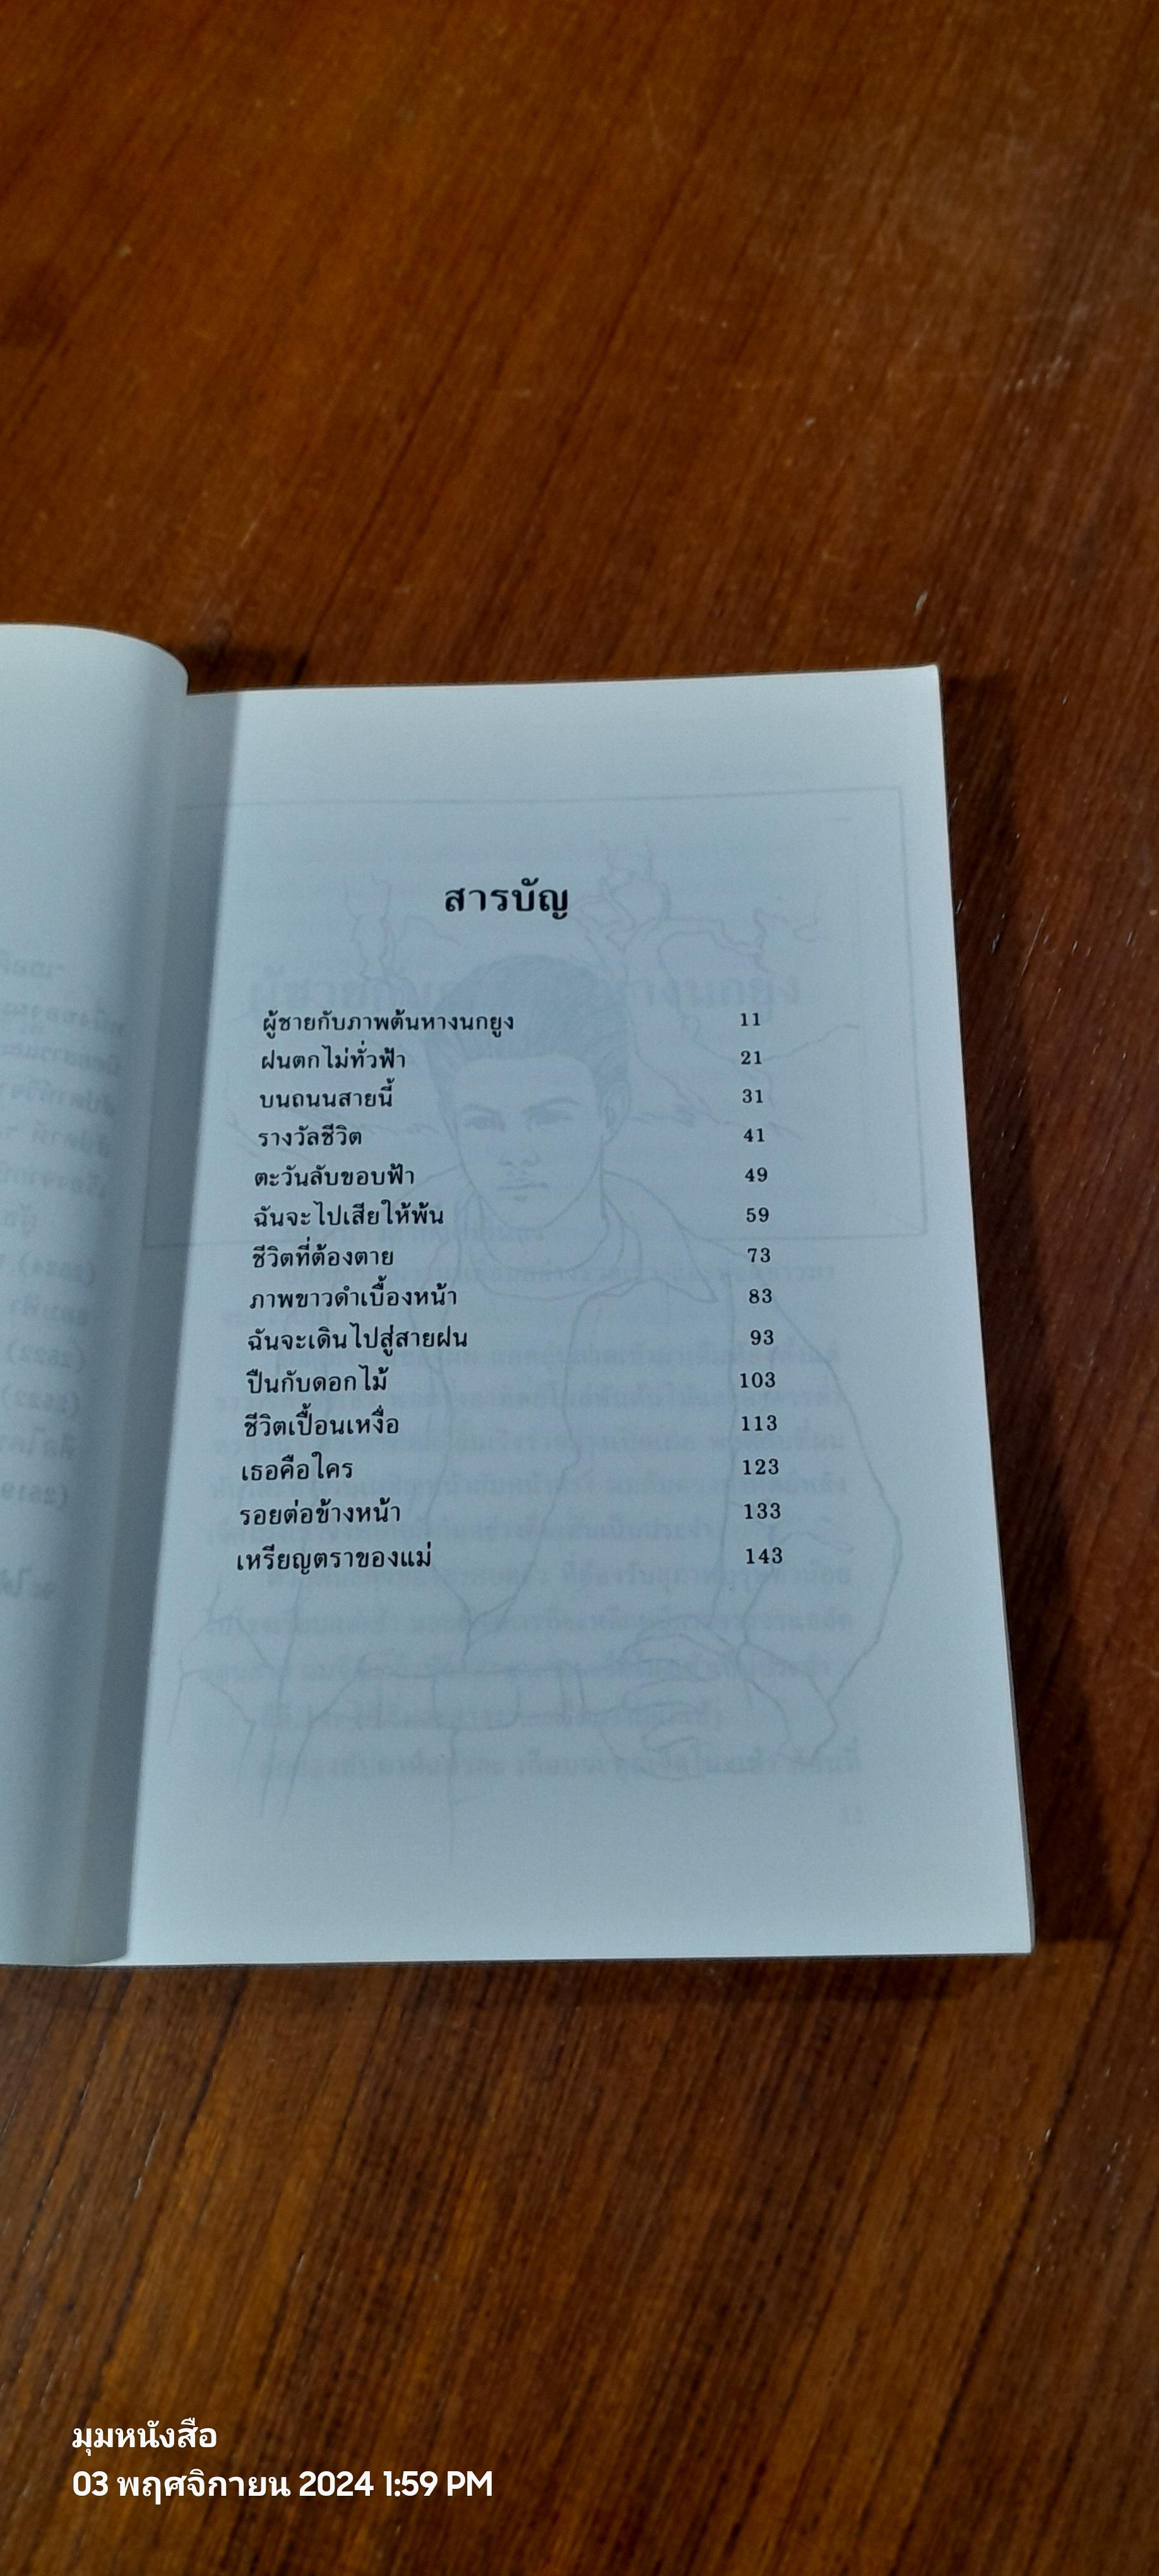 สารบัญ
ผู้ชายกับภาพต้นหางนกยูง 11
ฝนตกไม่ทั่วฟ้า 21
บนถนนสายนี้ 31
รางวัลชีวิต 41
ตะวันลับขอบฟ้า 49
ฉันจะไปเสียให้พ้น 59
ชีวิตที่ต้องตาย 73
ภาพขาวดำเบื้องหน้า 83
ฉันจะเดินไปสู่สายฝน 93
ปืนกับดอกไม้ 103
ชีวิตเปื้อนเหงื่อ 113
เธอคือใคร 123
รอยต่อข้างหน้า 133
เหรียญตราของแม่ 143
มุมหนังสือ
03 พฤศจิกายน 2024 1:59 PM